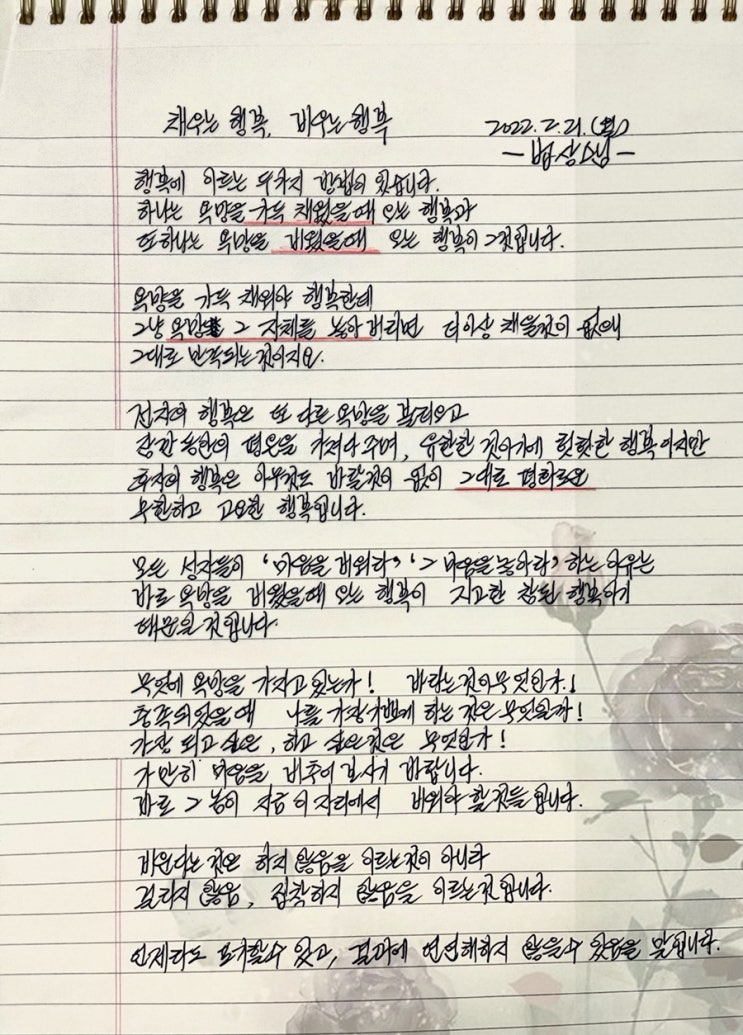 채우는 행복, 비우는 행복
2022. 2. 21. (월)
- 법상스님 -
행복에 이르는 두가지 방법이 있습니다.
하나는 욕망을 가득 채웠을때 오는 행복과
또하나는 욕망을 비웠을때 오는 행복이 그것입니다.
욕망을 가득 채워야 행복한데
그냥 욕망 그 자체를 놓아 버리면 더이상 채울것이 없어
그대로 만족되는 것이지요.
전자의 행복은 또 다른 욕망을 불러오고
잠깐 동안의 평온을 가져다 주며, 유한한 것이기에 헛헛한 행복이지만
후자의 행복은 아무것도 바랄것이 없이 그대로 평화로운
무한하고 고요한 행복입니다.
모든 성자들이 '마음을 비워라' '그 마음을 놓아라' 하는 이유는
바로 욕망을 비웠을때 오는 행복이 지고한 참된 행복하기
때문일 것입니다.
무엇에 욕망을 가지고 있는가! 바라는 것이 무엇인가!
충족되었을때 나를 가장 기쁘게 하는 것은 무엇일까!
가장 되고 싶은, 하고 싶은 것은 무엇인가!
가만히 마음을 비추어 보시기 바랍니다.
바로 그 놈이 지금 이 자리에서 비워야 할 것들입니다.
비운다는 것은 하지 않음을 이르는것이 아니라
걸리지 않음, 집착하지 않음을 이르는 것입니다.
언제라도 포기할수 있고, 결과에 연연해하지 않을수 있음을 말합니다.